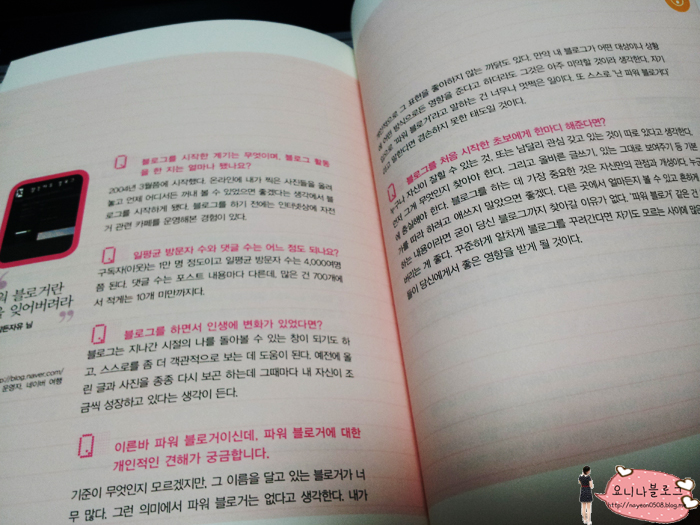 블로그를 시작한 계기는 무엇이며, 블로그 활동
을 한 지는 얼마나 됐나요?
2004년 3월쯤에 시작했다. 온라인에 내가 찍은 사진들을 올려
놓고 언제 어디서든 꺼내 볼 수 있었으면 좋겠다는 생각에서 블
로그를 시작하게 됐다. 블로그를 하기 전에는 인터넷상에 자전
거 관련 카페를 운영해본 경험이 있다.
일평균 방문자 수와 댓글 수는 어느 정도 되나요?
구독자(이웃)는 1만 명 정도이고 일평균 방문자 수는 4,000여명
쯤 된다. 댓글 수는 포스트 내용마다 다른데, 많은 건 700개에
서 적게는 10개 미만까지다.
블로그를 하면서 인생에 변화가 있었다면?
블로그는 지나간 시절의 나를 돌아볼 수 있는 창이 되기도 하
고, 스스로를 좀 더 객관적으로 보는 데 도움이 된다. 예전에 올
린 글과 사진을 종종 다시 보곤 하는데 그때마다 내 자신이 조
금씩 성장하고 있다는 생각이 든다.
이른바 파워 블로거이신데, 파워 블로거에 대한
개인적인 견해가 궁금합니다.
기준이 무엇인지 모르겠지만, 그 이름을 달고 있는 블로거가 너
무 많다. 그런 의미에서 파워 블로거는 없다고 생각한다. 내가
워 블로거란
을 잊어버려라
든자유 님
://blog.naver.com/
운영자, 네이버 여행
적으로 그 표현을 좋아하지 않는 까닭도 있다. 만약 내 블로그가 어떤 대상이나 상황
어떤 방식으로든 영향을 준다고 하더라도 그것은 아주 미약할 것이라 생각한다. 자기
입으로 '파워 블로거'라고 말하는 건 너무나 멋쩍은 일이다. 또 스스로 '난 파워 블로거다'
라고 말한다면 겸손하지 못한 태도일 것이다.
블로그를 처음 시작한 초보에게 한마디 해준다면?
누구나 자신이 잘할 수 있는 것, 또는 남달리 관심 갖고 있는 것이 따로 있다고 생각한다.
먼저 그게 무엇인지 찾아야 한다. 그리고 올바른 글쓰기, 있는 그대로 보여주기 등 기본
에 충실해야 한다. 블로그를 하는 데 가장 중요한 것은 자신만의 관점과 개성이다. 누군
가를 따라 하려고 애쓰지 말았으면 좋겠다. 다른 곳에서 얼마든지 볼 수 있고 흔하게
하는 내용이라면 굳이 당신 블로그까지 찾아갈 이유가 없다. '파워 블로거' 같은 건
버리는 게 좋다. 꾸준하게 알차게 블로그를 꾸려간다면 자기도 모르는 사이에 많은
들이 당신에게서 좋은 영향을 받게 될 것이다.
요니나블로그
http://nayeon0508.blog.me